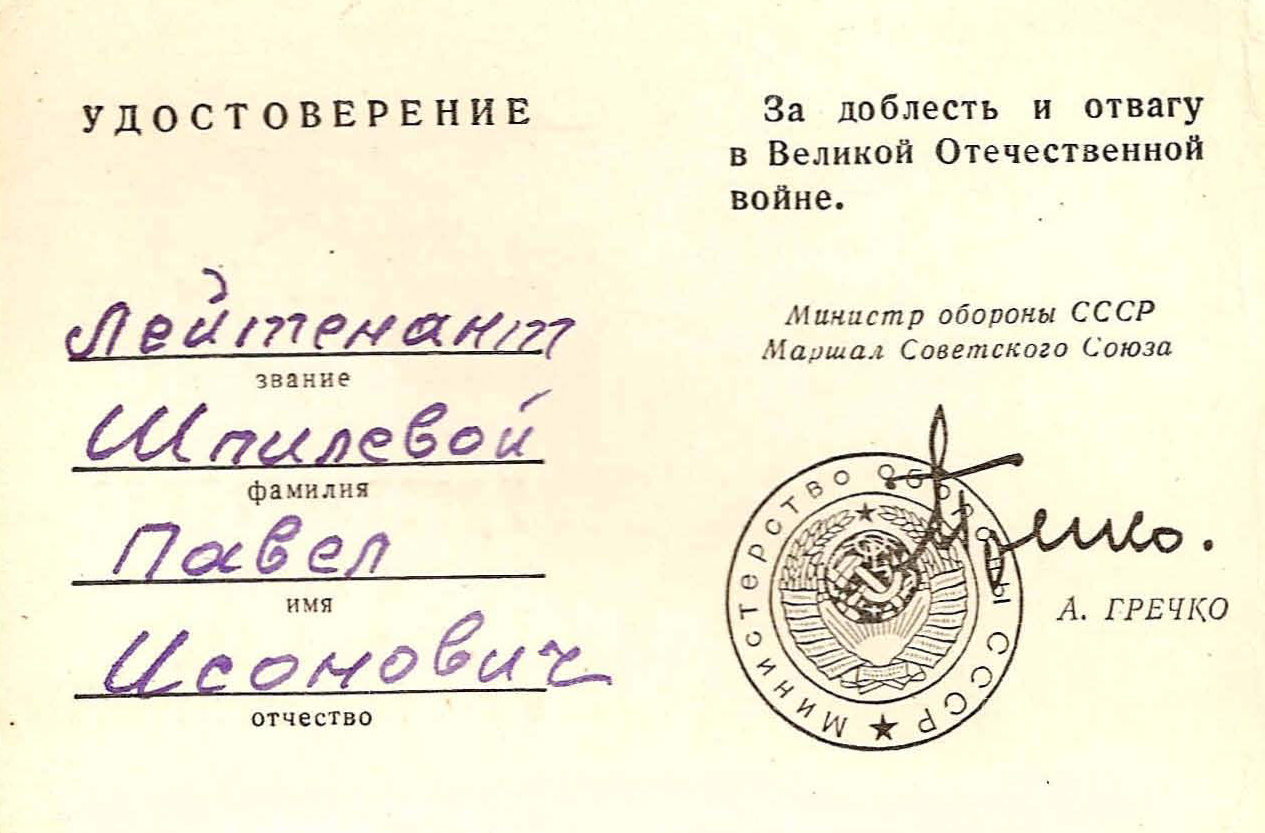 УДОСТОВЕРЕНИЕ
Лейтенант
звание
Шпилевой
фамилия
Павел
имя
Исонович
отчество
За доблесть и отвагу
в Великой Отечественной
войне.
Министр обороны СССР
Маршал Советского Союза
Гречко.
А. ГРЕЧКО
МИНИСТЕРСТВО ОБОРОНЫ СССР